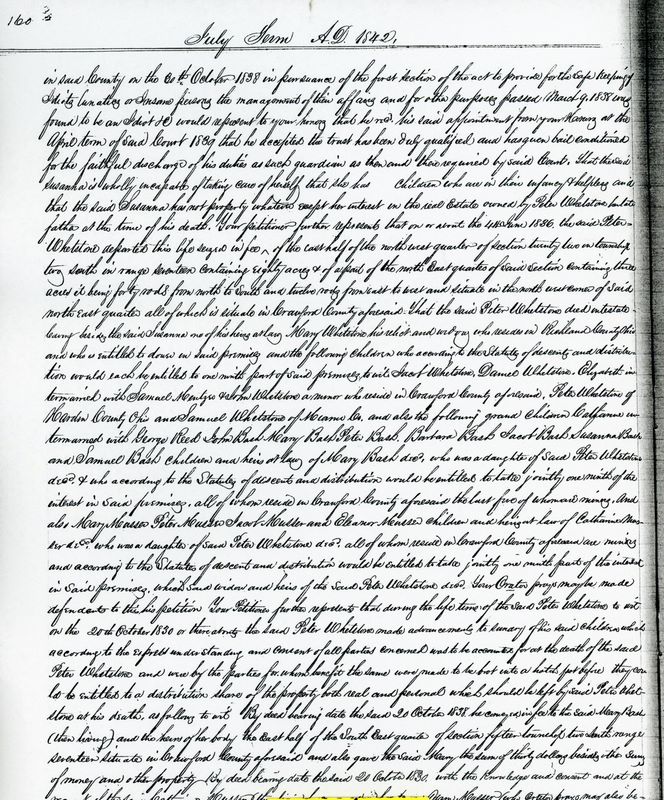 160
July Term A.D. 1842,
in said County on the 20th October 1838 in pursuance of the first section of the act to provide for the Safe keeping of
Idiots lunatics or Insane persons the management of their affairs and for other purposes passed March 9, 1838 was
found to be an Idiot &c would represent to your honors that he recd his said appointment from your Honors at the
April term of Said Court 1839 that he accepted the trust has been duly qualified and has given bail conditioned
for the faithful discharge of his duties as such guardian as then and there required by said Court. That the said
Susanna is wholly incapable of taking care of herself that she has children who are in their infancy & helpless and
that the said Susanna has not property whatever except her interest in the real Estate owned by Peter Whetstone late
father at the time of his death. Your petitioner further represents that on or about the June 1836. the said Peter
Whetstone departed this life seized in fee, of the east half of the north west quarter of section twenty two in township
two, south in range seventeen containing eighty acres & of a part of the north East quarter of said Section containing three
acres it being forty rods from north to South and twelve rods from east to west and situate in the north west corner of Said
north East quarter all of which is situate in Crawford County aforesaid. That the said Peter Whetstone died intestate
leaving beside the said Susanna one of his heirs at law Mary Whetstone his relict and widow who resides in Richland County Ohio
and who is entitled to dower in said premises and the following children who according to the Statutes of descents and distribu-
tion would each be entitled to one ninth part of said premises, to wit, Jacob Whetstone, Daniel Whetstone. Elizabeth in-
termarried with Samuel & John Whetstone a minor who reside in Crawford County aforesaid, Peter Whetstone of
Harden County Ohio and Samuel Whetstone of Co. and also the following grand Children in-
termarried with George Reed John Bash Mary Bash Peter Bash, Barbara Bash Jacob Bash Susanna Bash
and Samuel Bash children and heirs at law of Mary Bash decd, who was a daughter of Said Peter Whetstone
decd & who according to the Statutes of descents and distribution would be entitled to take jointly one ninth of the
interest in Said premises, all of whom reside in Crawford County aforesaid the last five of whom are minors. And
also Mary Musser Peter Musser Jacob Musser and Eleanor Musser children and heirs at law of Catharine Mus-
ser decd, who was a daughter of said Peter Whetstone decd. all of whom reside in Crawford County aforesaid are minors
and according to the Statutes of descent and distribution would be entitled to take jointly one ninth part of the interest
in Said premises, which Said widow and heirs of the Said Peter Whetstone decd. Your Orator prays may be made
defendents to this his petition Your Petitioner further represents that during the life time of the Said Peter Whetstone to wit
on the 20th October 1830 or there abouts the said Peter Whetstone made advancements to sundry of his said children, which
according to the express understanding and consent of all parties concerned was to be accounted for at the death of the said
Peter Whetstone and were by the parties for whose benefit the same were made to be brot into a hotch pot before they cou-
ld be entitled to a distributive share of the property both real and personal which should be left by said Peter Whet-
stone at his death, as follows to wit By deed bearing date the said 20 October 1838 he conveyed in fee to the said Mary Bash
(then living) and the heirs of her body the East half of the South East quarter of section fifteen township two South range
seventeen situate in Crawford County aforesaid and also gave the Said Mary the sum of thirty dollars besides other sums
of money and other property By deed bearing date the said 20 October 1830, with the knowledge and consent and at the